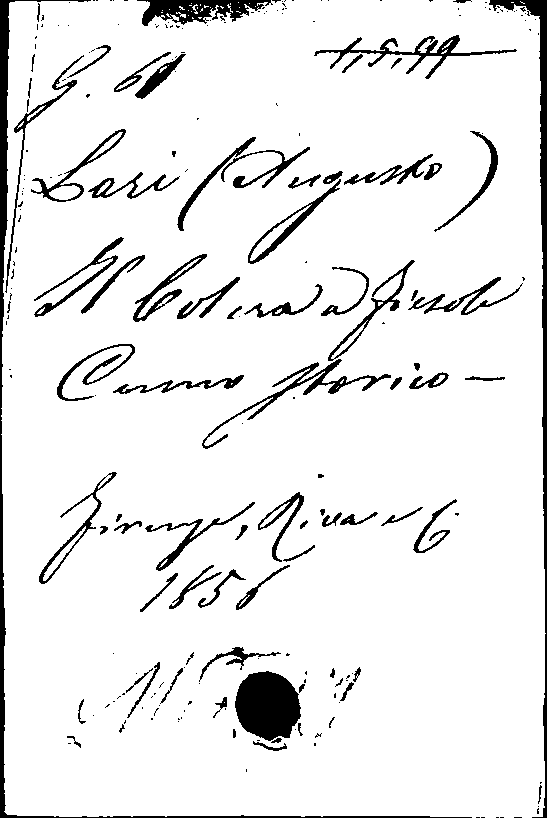 G. 61
1,5,99
Lari (Augusto)
Il Colera a Fiesole
Cenno storico —
Firenze, Riva e C.
1856